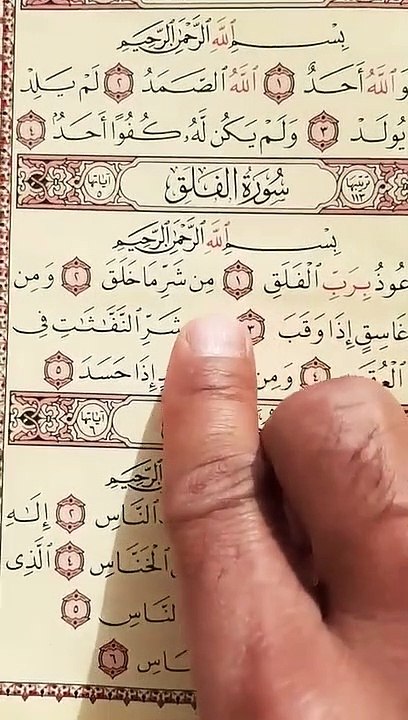 بِسْمِ ٱللَّهِ ٱلرَّحْمَٰنِ ٱلرَّحِيمِ
وَٱللَّهُ أَحَدٌ ١ ٱللَّهُ ٱلصَّمَدُ ٢ لَمْ يَلِدْ
يُولَدْ ٣ وَلَمْ يَكُن لَّهُۥ كُفُوًا أَحَدٌۢ ٤
ترتيبها ١١٣ سُورَةُ ٱلْفَلَقِ آياتها ٥
بِسْمِ ٱللَّهِ ٱلرَّحْمَٰنِ ٱلرَّحِيمِ
عُوذُ بِرَبِّ ٱلْفَلَقِ ١ مِن شَرِّ مَا خَلَقَ ٢ وَمِن
غَاسِقٍ إِذَا وَقَبَ ٣ شَرِّ ٱلنَّفَّٰثَٰتِ فِى
ٱلْعُقَدِ ٤ وَمِن إِذَا حَسَدَ ٥
آياتها ٦
ٱلرَّحِيمِ
ٱلنَّاسِ ٢ إِلَٰهِ
ٱلْخَنَّاسِ ٤ ٱلَّذِى
ٱلنَّاسِ ٥
٦